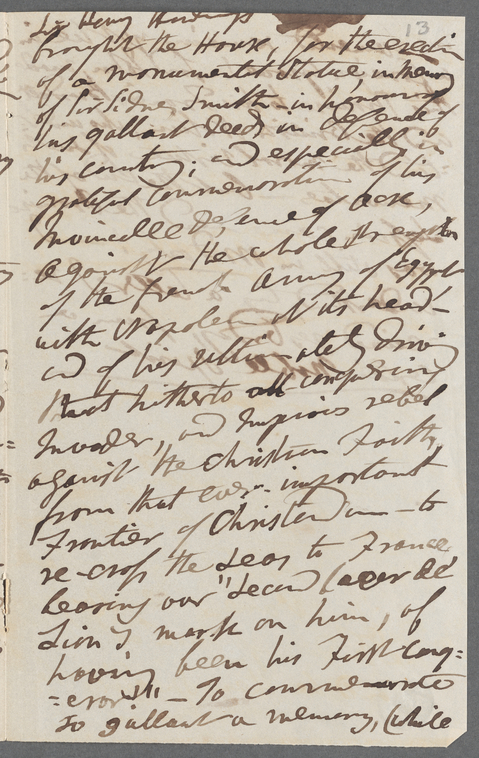 13
Sir Henry Hardinge
brought the House, for the erection
of a monumental Statue, in Memory
of Sir Sidney Smith — in honour of
his gallant deeds in defence of
his country; and especially in
grateful commemoration of his
Invincible Defence of Acre,
against the whole strength
of the French Army of Egypt
with Napoleon at its head —
and of his ultimately driving
that hitherto all conquering
Invader, and Impious rebel
against the Christian Faith,
from that ever-important
Frontier of Christendom — to
re-cross the Seas to France
bearing our "Second Coeur de
Lion's mark on him, of
having been his First Conq=
=eror!!" — To commemorate
so gallant a memory, (while